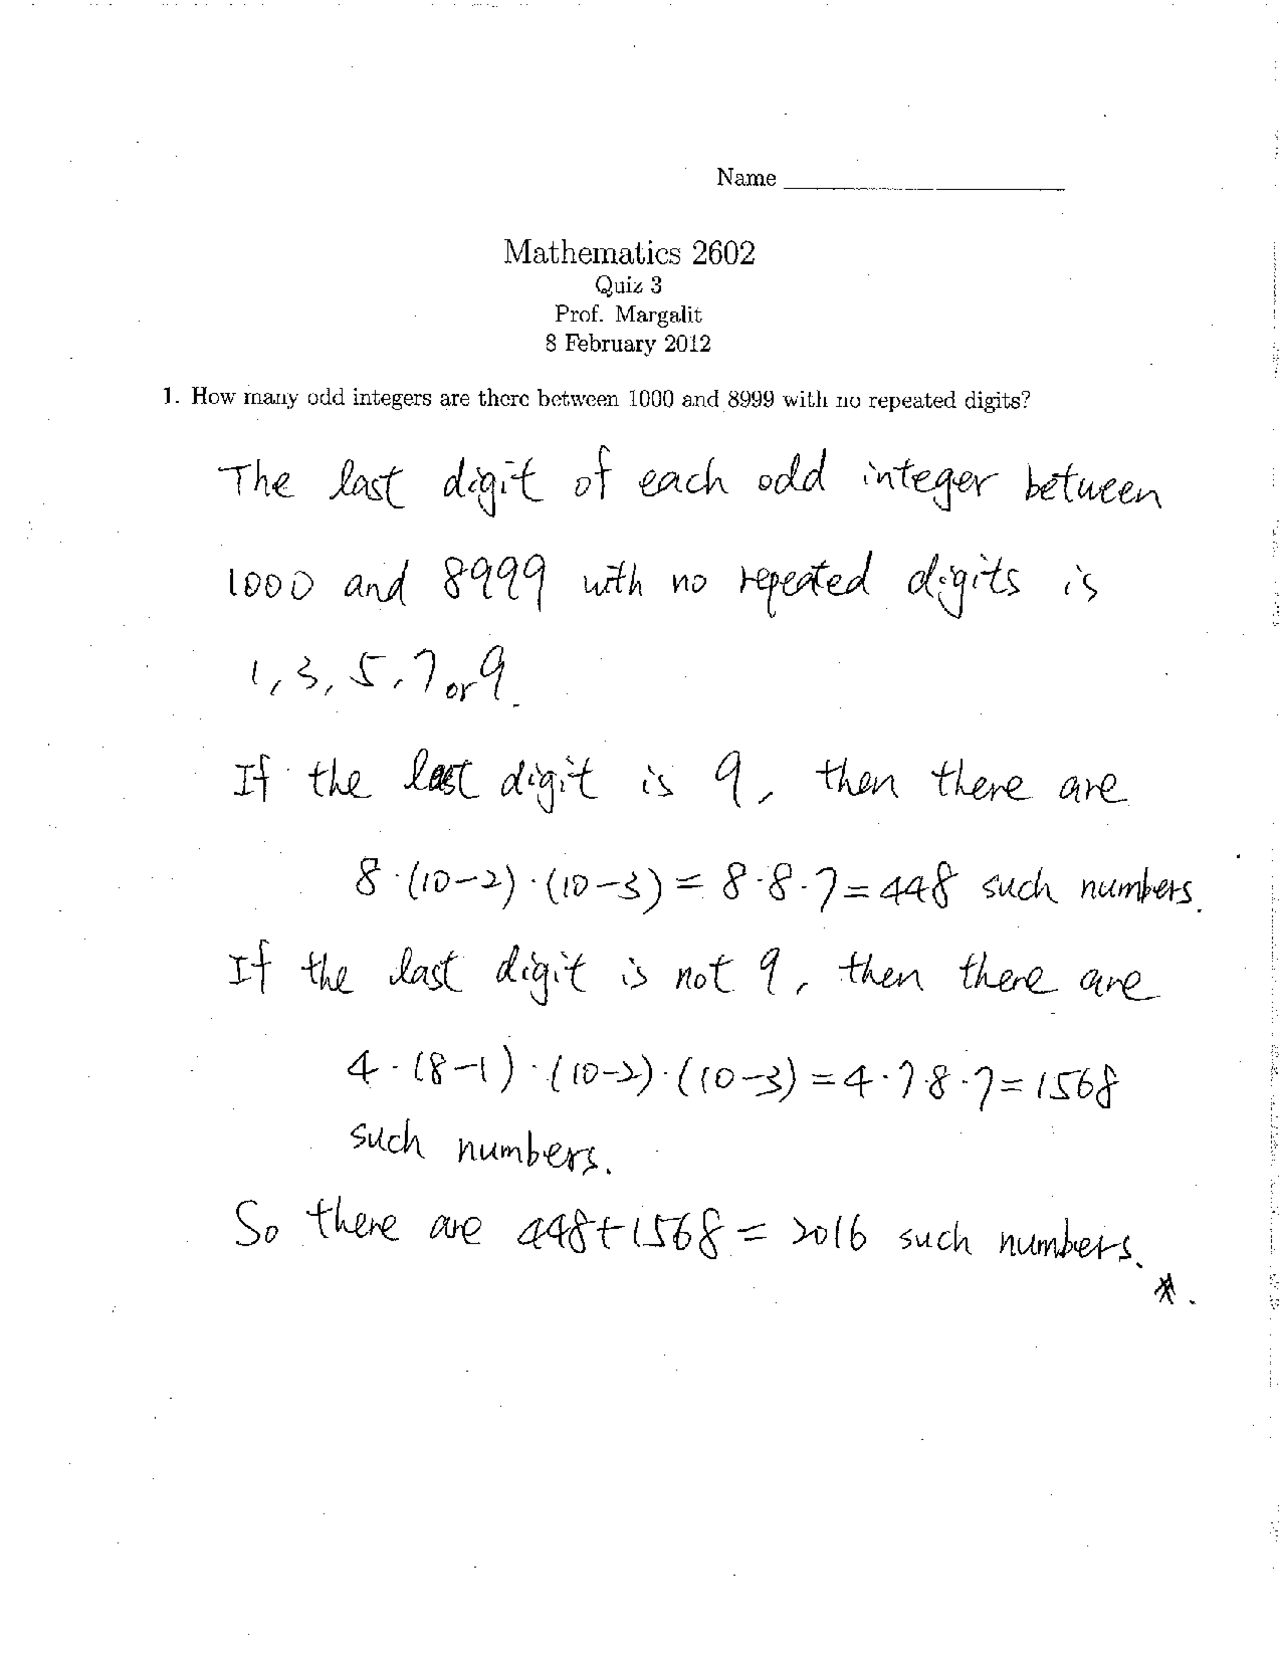 Name
Mathematics 2602
Quiz 3
Prof. Margalit
8 February 2012
1. How many odd integers are there between 1000 and 8999 with no repeated digits?
The last digit of each odd integer between
1000 and 8999 with no repeated digits is
1, 3, 5, 7 or 9.
If the last digit is 9, then there are
8·(10-2)·(10-3) = 8·8·7 = 448 such numbers.
If the last digit is not 9, then there are
4·(8-1)·(10-2)·(10-3) = 4·7·8·7 = 1568
such numbers.
So there are 448+1568 = 2016 such numbers.